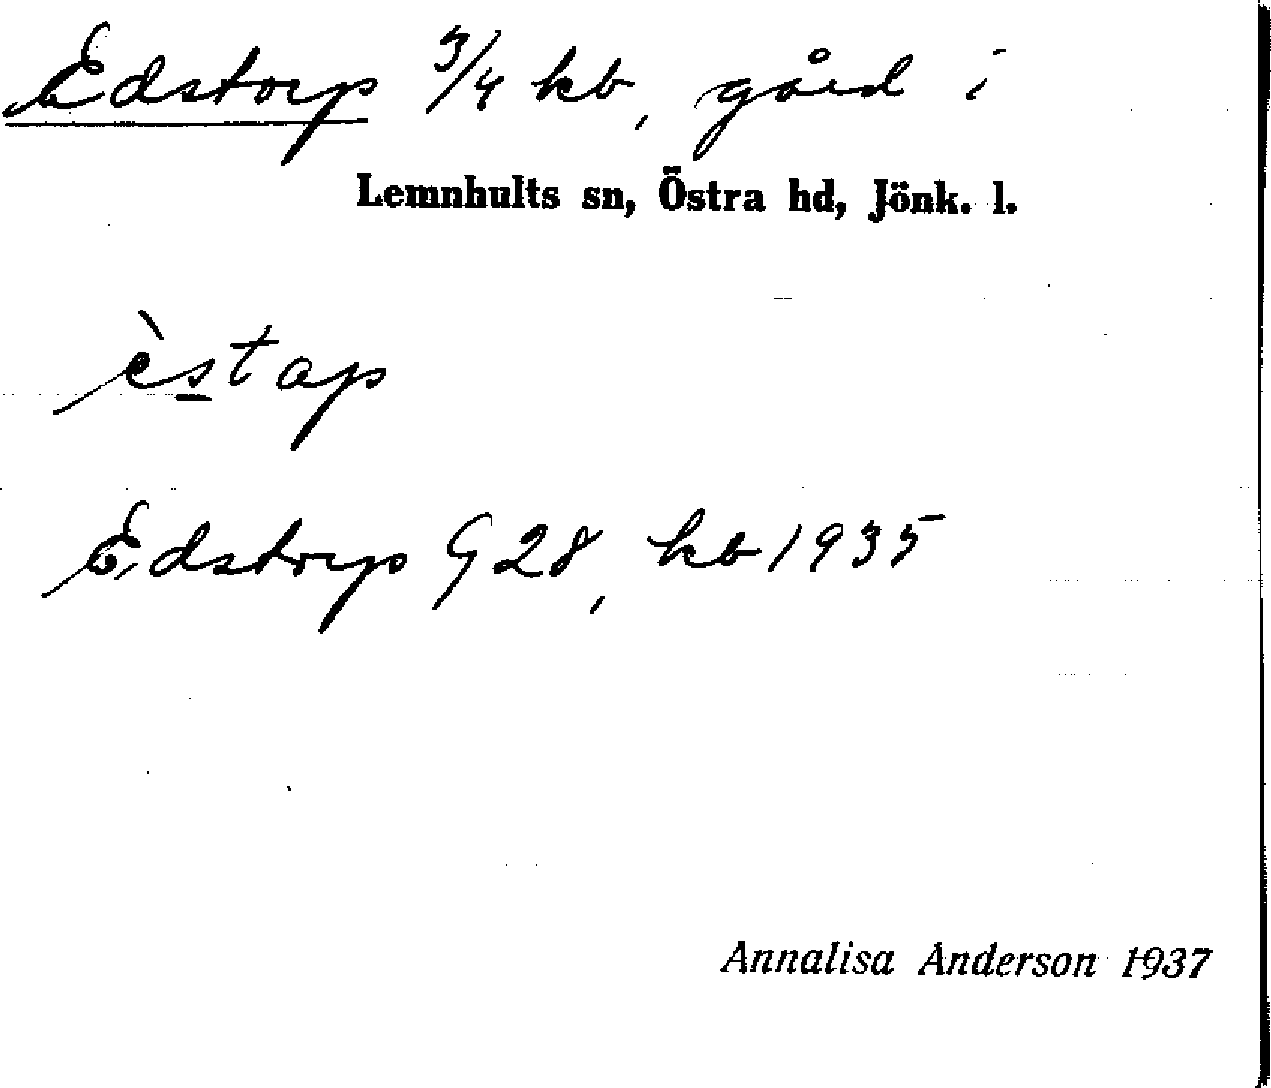 Edstorp 3/4 kb, gård i
Lemnhults sn, Östra hd, Jönk. l.
èstap
Edstorp G 28, kb 1935
Annalisa Anderson 1937